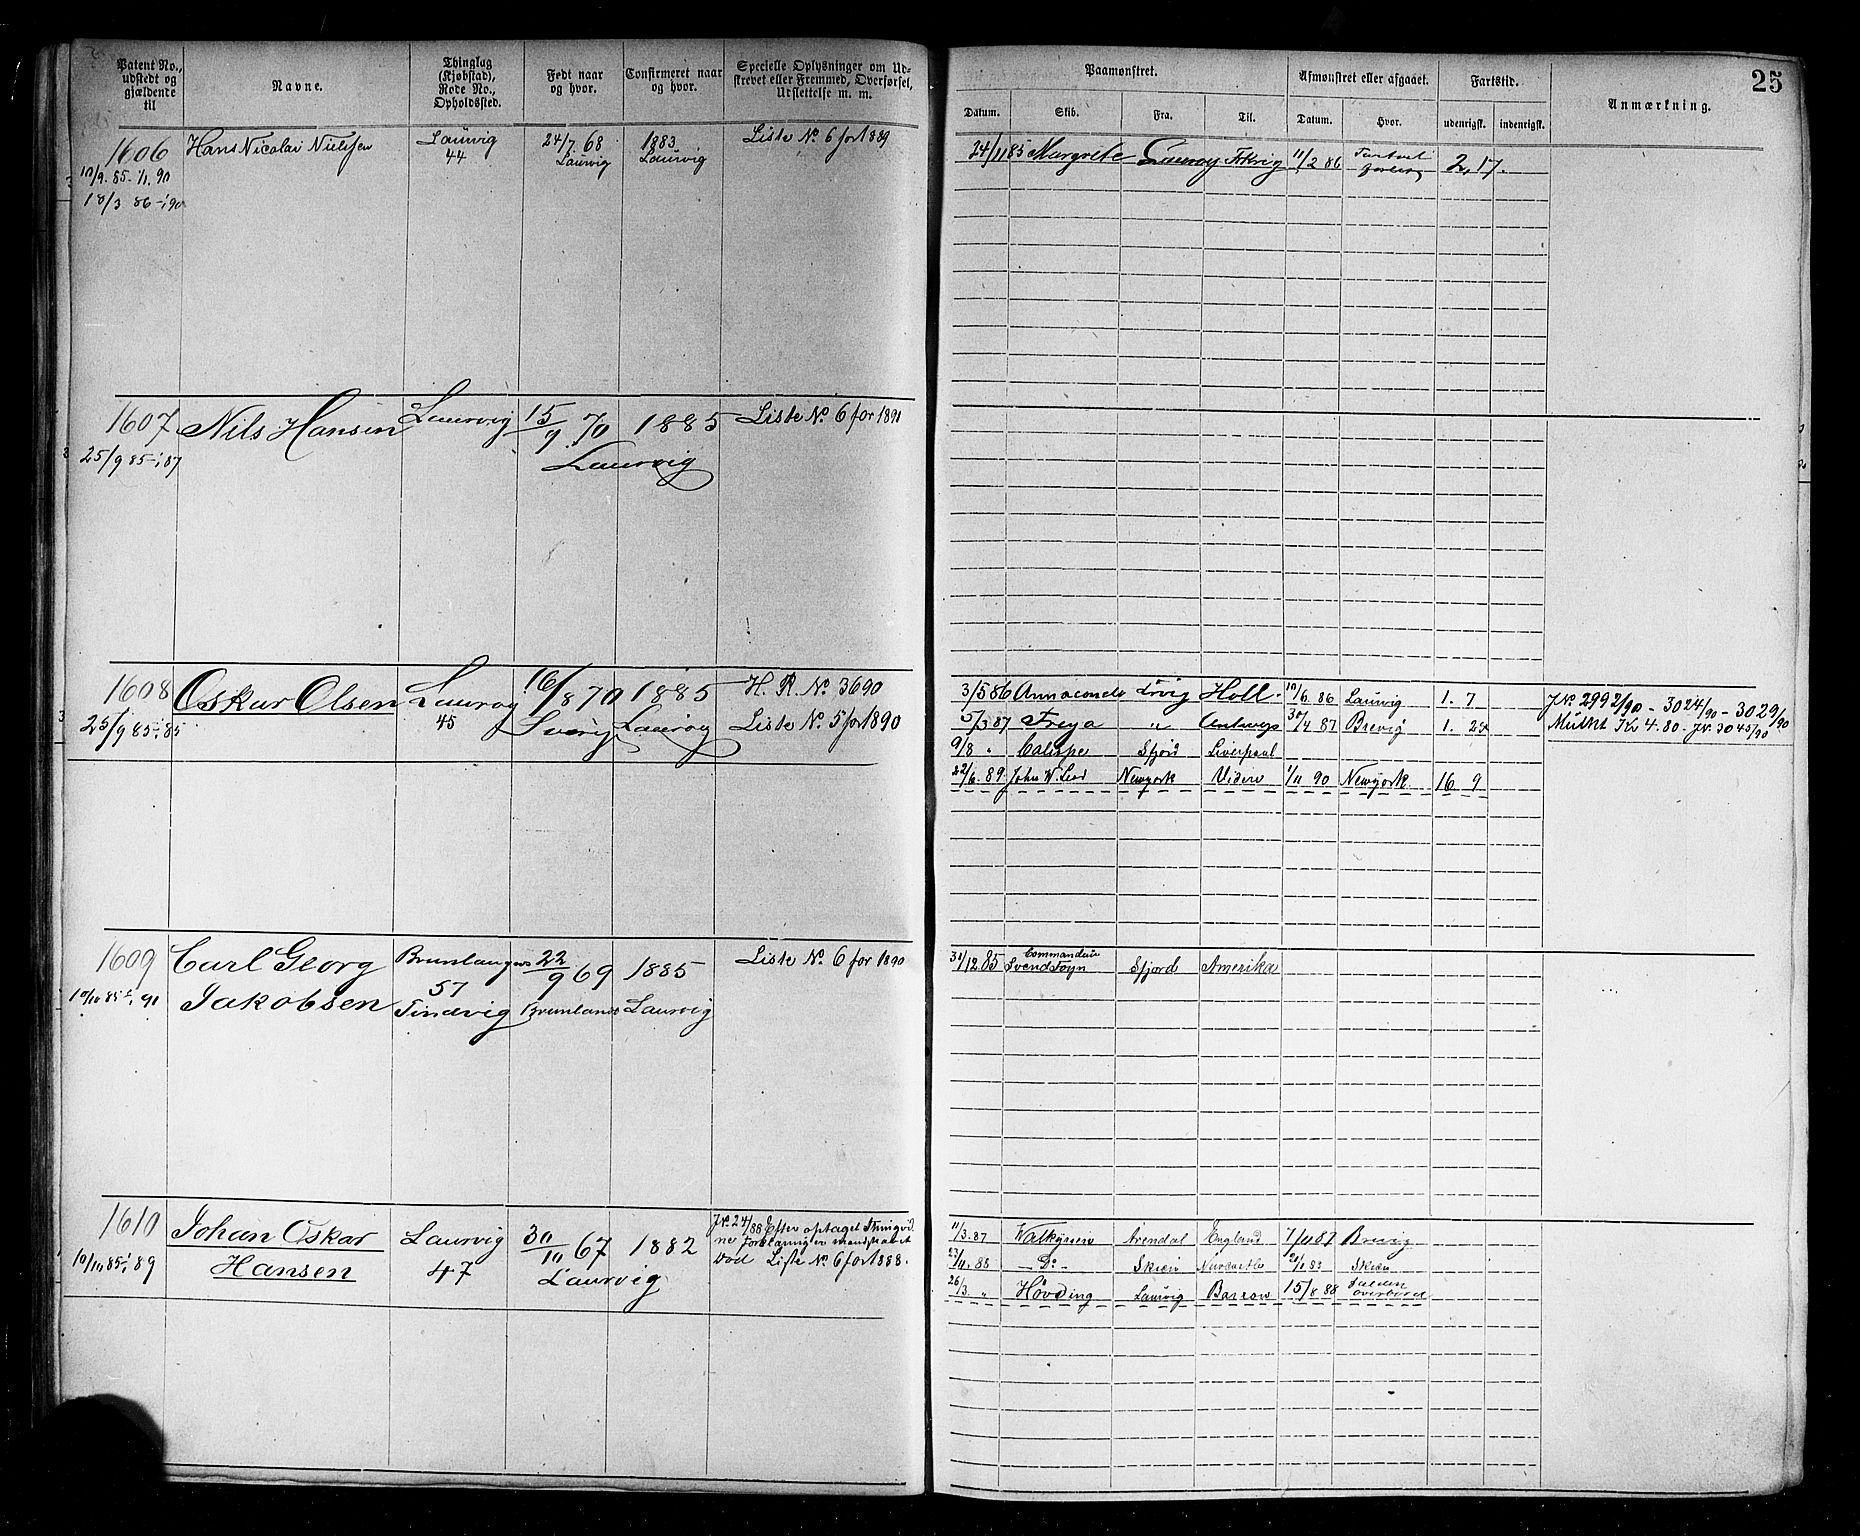 25
Patent No., udstedt og gjældende til
Navne.
Thinglag (Kjøbstad), Rode No., Opholdssted.
Født naar og hvor.
Confirmeret naar og hvor.
Specielle Oplysninger om Udskrevet eller Fremmed, Overførsel, Udslettelse m. m.
Paamønstret.
Afmønstret eller afgaaet.
Fartstid.
Anmærkning.
Datum. Skib. Fra. Til. Datum. Hvor. udenrigsk. indenrigsk.
1606 Hans Nicolai Nielsen Laurvig 24/7. 68 1883 Liste No. 6 for 1889
44 Laurvig Laurvig
10/9. 85 - 1/1. 90
18/3 86 - 1/1 90
24/11 85 Margrete Laurvig 11/2 86 2, 17.
1607 Nils Hansen Laurvig 15/9 70 1885 Liste No. 6 for 1891
25/9 85 87
Laurvig
1608 Oskar Olsen Laurvig 16/8 70 1885 H. R. No. 3690
25/9 85 85 45 Laurvig Liste No. 5 for 1890
3/5 86 Annaconda Lvig Holl. 10/6. 86 Laurvig 1. 7
JNo 2992/90 - 3024/90 - 3029/90
5/3 87 Freya " Antwerp 30/4 87 Brevig 1. 25
Mulkt Kr 4.80. JN. 3045/90
9/8 " Caliope Sfjord Liverpool
22/6. 89 John W. Newyork Videre 1/11 90 Newyork 16 9
1609 Carl Georg Brunlangnes 22/9 69 1885 Liste No. 6 for 1890
10/10 85 91 Jakobsen 57 Brunlanes Laurvig
Tindvig
31/12. 85 Commandeur
Svend Foyn Sfjord Amerika
1610 Johan Oskar Laurvig 30/11 67 1882
JNo. 24/88 Efter optaget
10/10 85 89 Hansen 47 Laurvig
forklaring er mandskabet
død Liste No. 6 for 1888.
11/3. 87 Walkyrien Arendal England 7/10 87 Brevig
88 - Do - Skien Skien
26/3. " Høvding Laurvig Barrow 15/8 88 falden
overbord